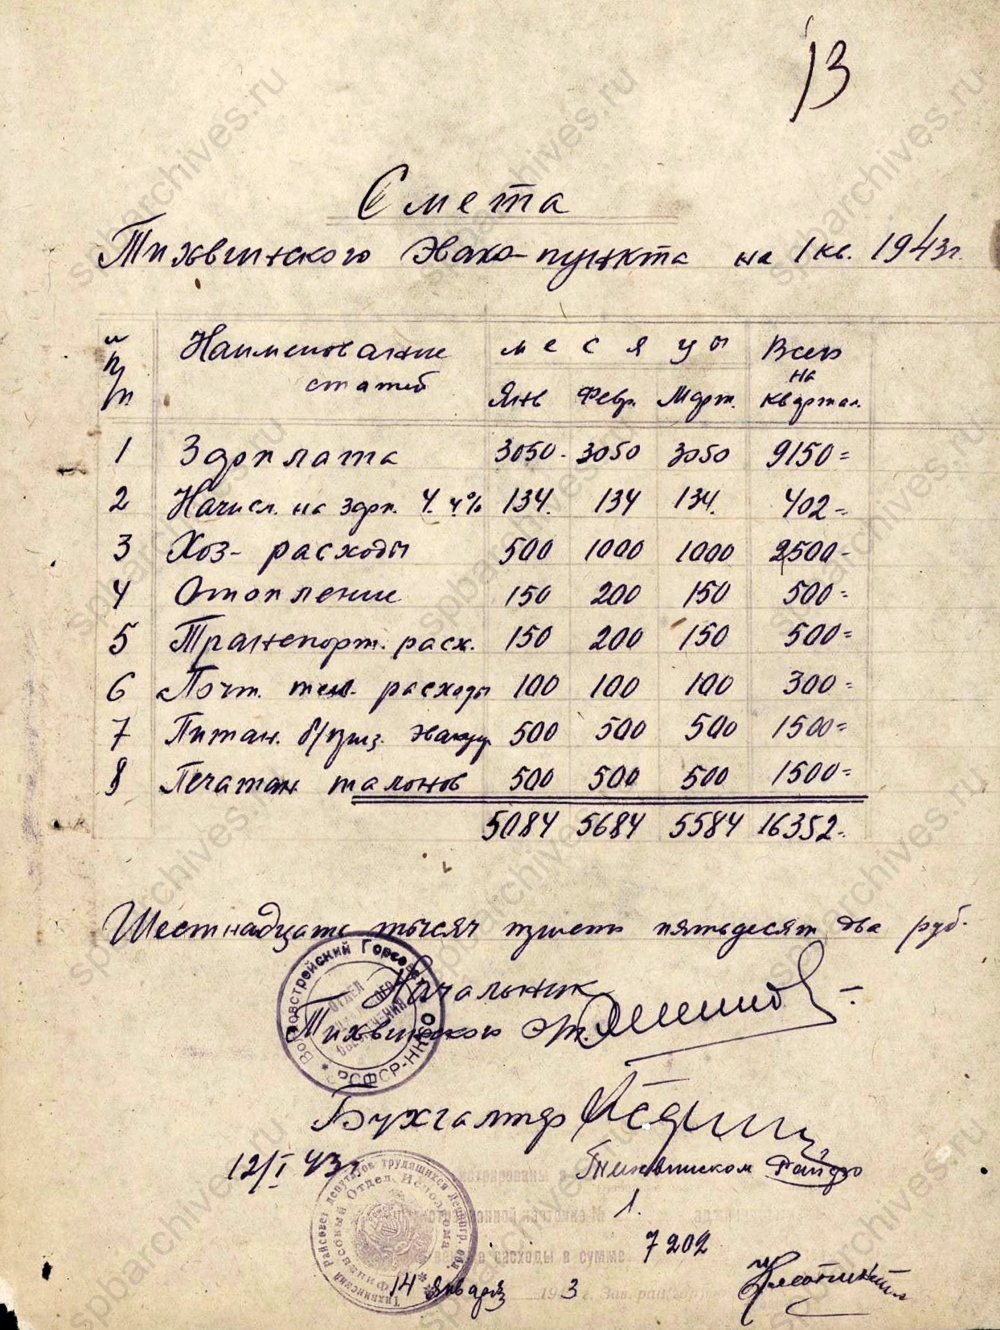 13
Смета
Тихвинского Эвако-пункта на 1 кв. 1943г.
№ п/п Наименование статей месяцы Всего на квартал.
Янв Февр. Март.
1 Зарплата 3050- 3050 3050 9150=
2 Начисл. на зарп. 4.4% 134. 134 134. 402=
3 Хоз- расходы 500 1000 1000 2500-
4 Отопление 150 200 150 500=
5 Транспорт. расх. 150 200 150 500=
6 Почт. тел. расходы 100 100 100 300=
7 Питан. б/приз. эвакуир 500 500 500 1500=
8 Печатан талонов 500 500 500 1500=
5084 5684 5584 16352.
Шестнадцать тысяч триста пятьдесят два руб.
Волховстроевский Горсовет
РСФСР-НКСО
Начальник
Тихвинского Эп.
Бухгалтер
12/I 43г
Тихвинском Райфо
1.
7202
Тихвинский Райсовет депутатов трудящихся Ленингр. обл.
Финансовый Отдел Исполкома
14 Января 1943 г. Зав. рай(гор)